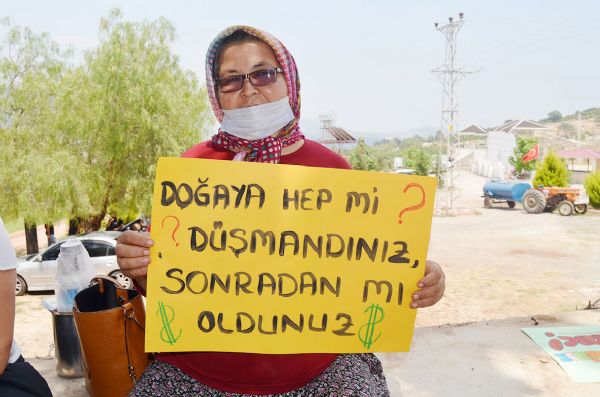 DOĞAYA HEP Mİ ?
? DÜŞMANDINIZ,
SONRADAN MI
$ OLDUNUZ $